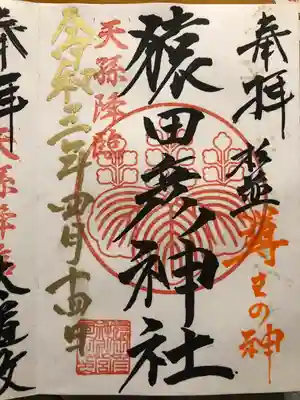 奉拝
導きの神
猿田彦神社
天孫降臨
令和三年四月十四日
奉拝
天孫降臨